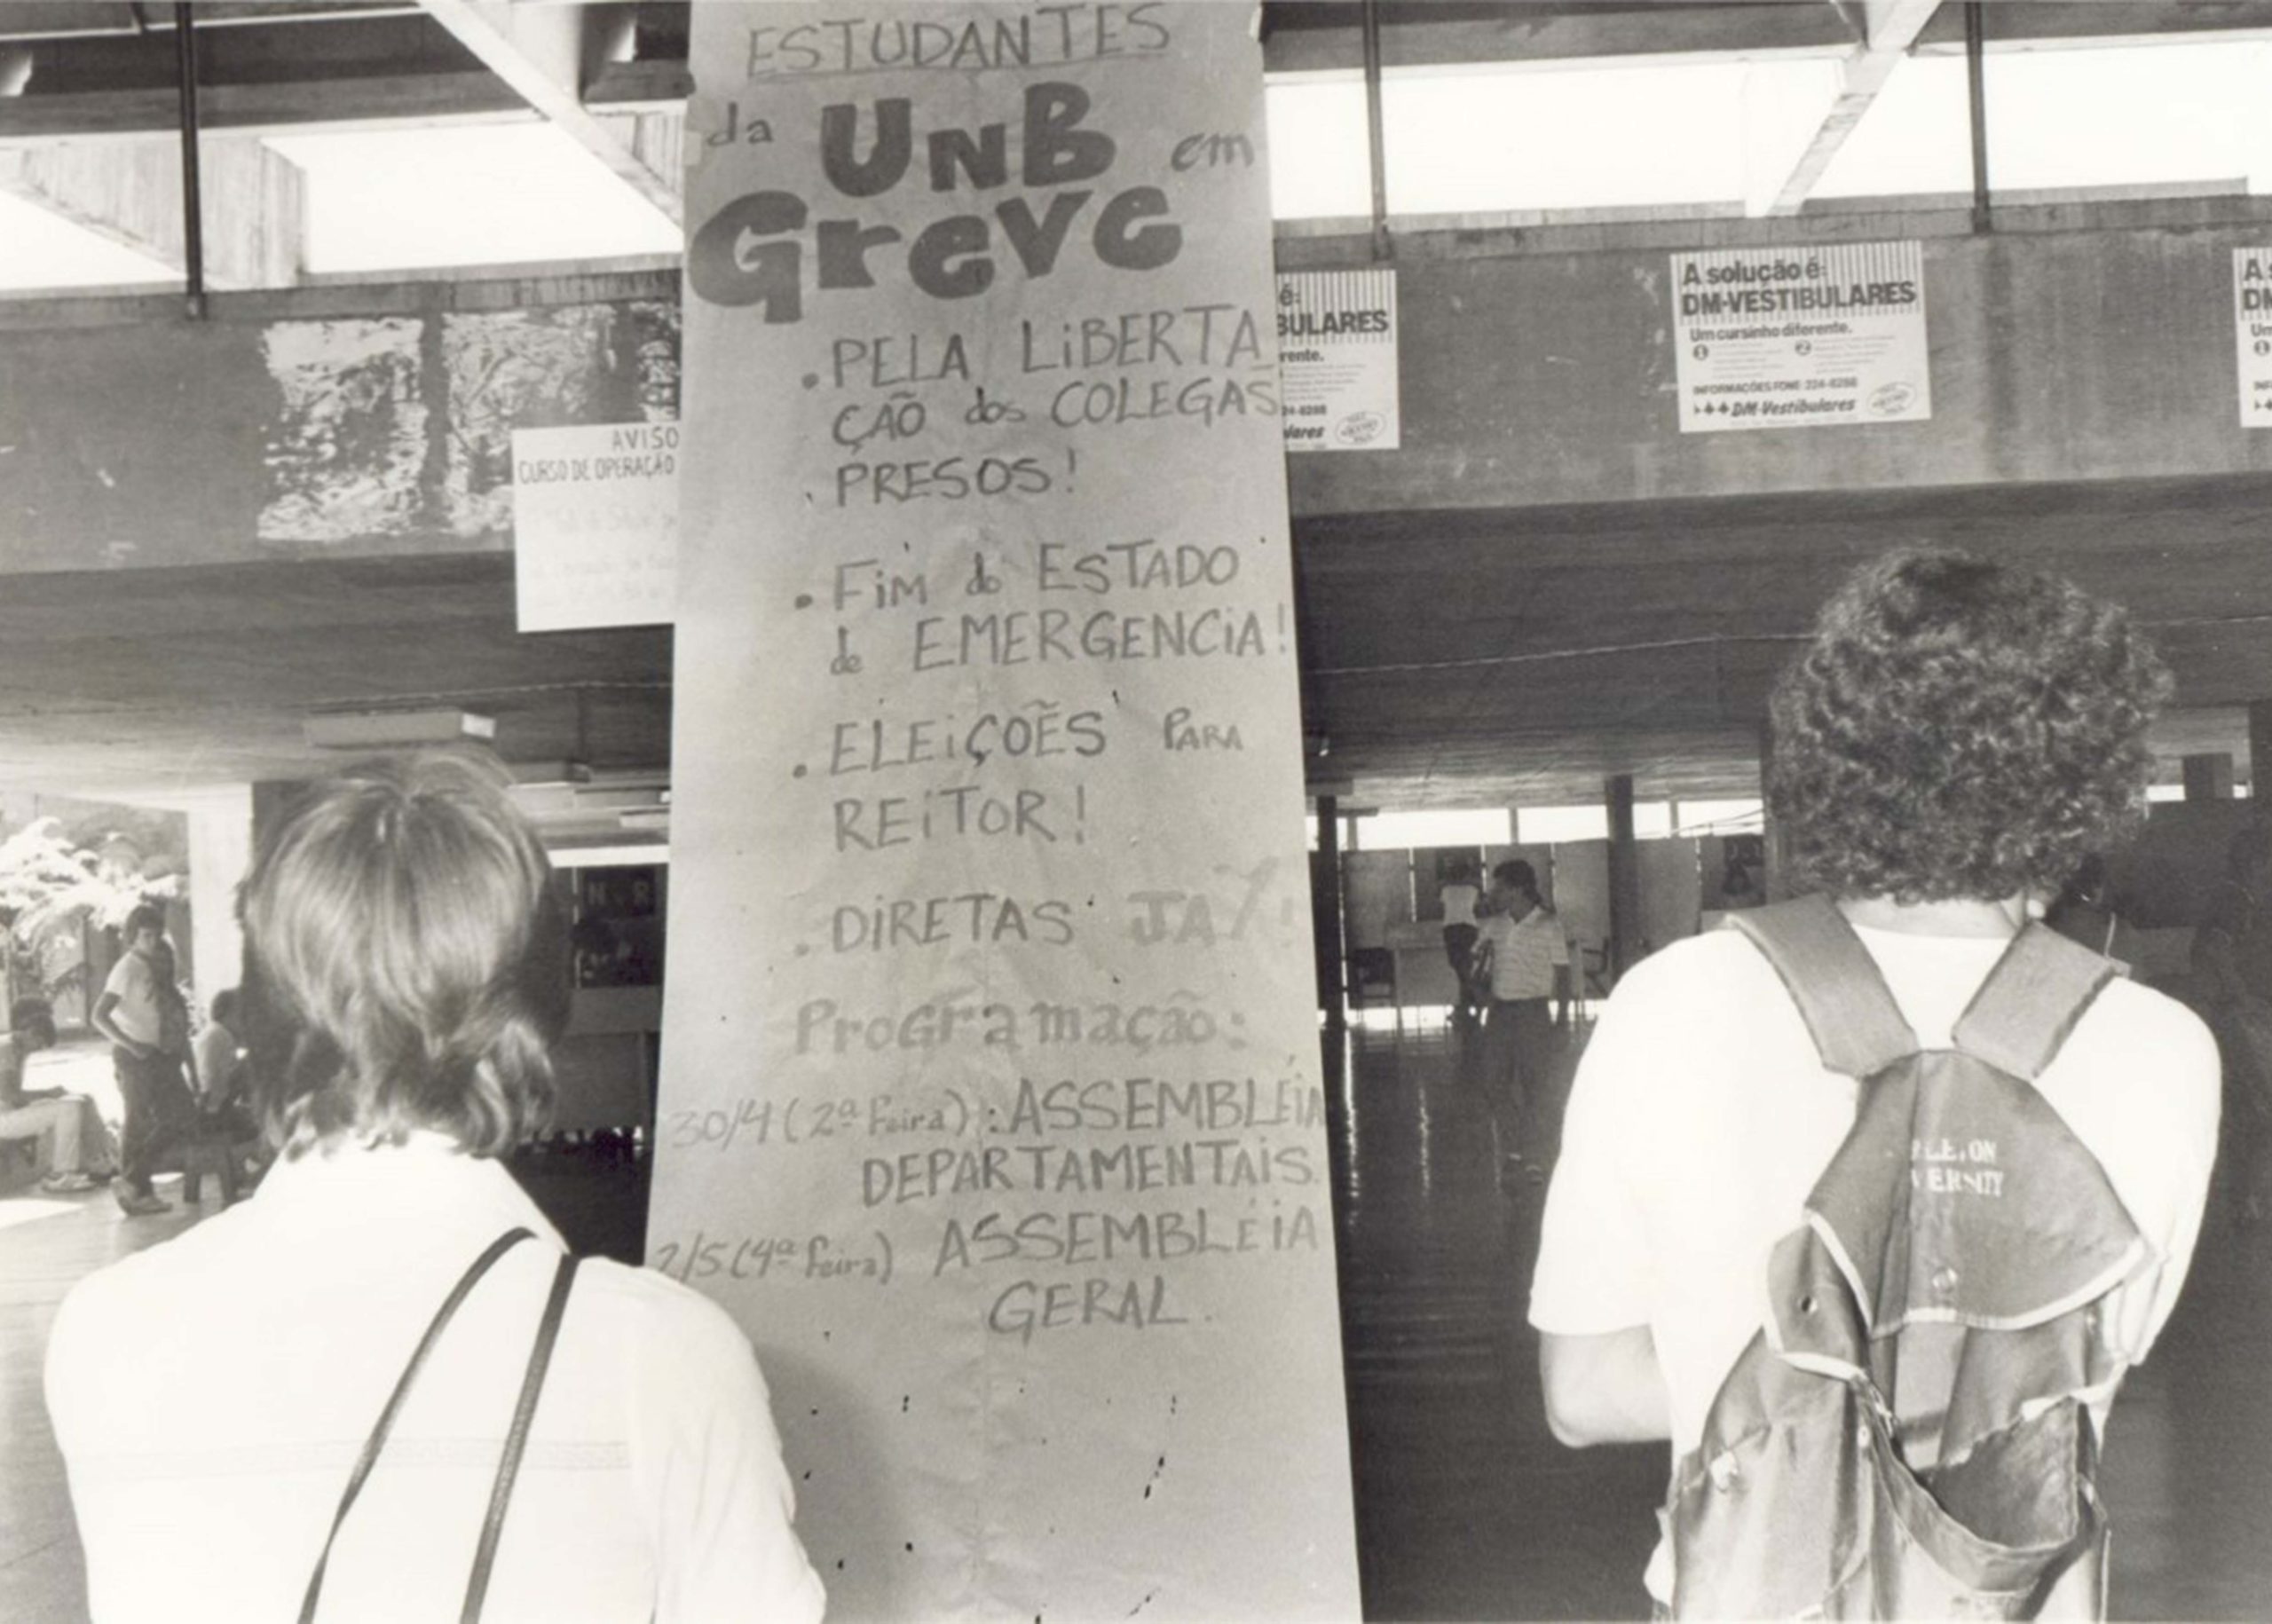 ESTUDANTES
da UnB em
Greve
. PELA LIBERTA
ÇÃO dos COLEGAS
PRESOS!
. FIM do ESTADO
de EMERGENCIA!
. ELEIÇOES PARA
REITOR!
. DIRETAS JA!
Programação:
30/4 (2ª feira): ASSEMBLÉIA
DEPARTAMENTAIS.
2/5 (4ª feira) ASSEMBLÉIA
GERAL.
AVISO
CURSO DE OPERAÇÃO
é:
BULARES
rente.
24-8288
lares
A solução é:
DM-VESTIBULARES
Um cursinho diferente.
1 2
INFORMAÇÕES FONE: 224-8288
DM-Vestibulares
A s
DM
Um
1